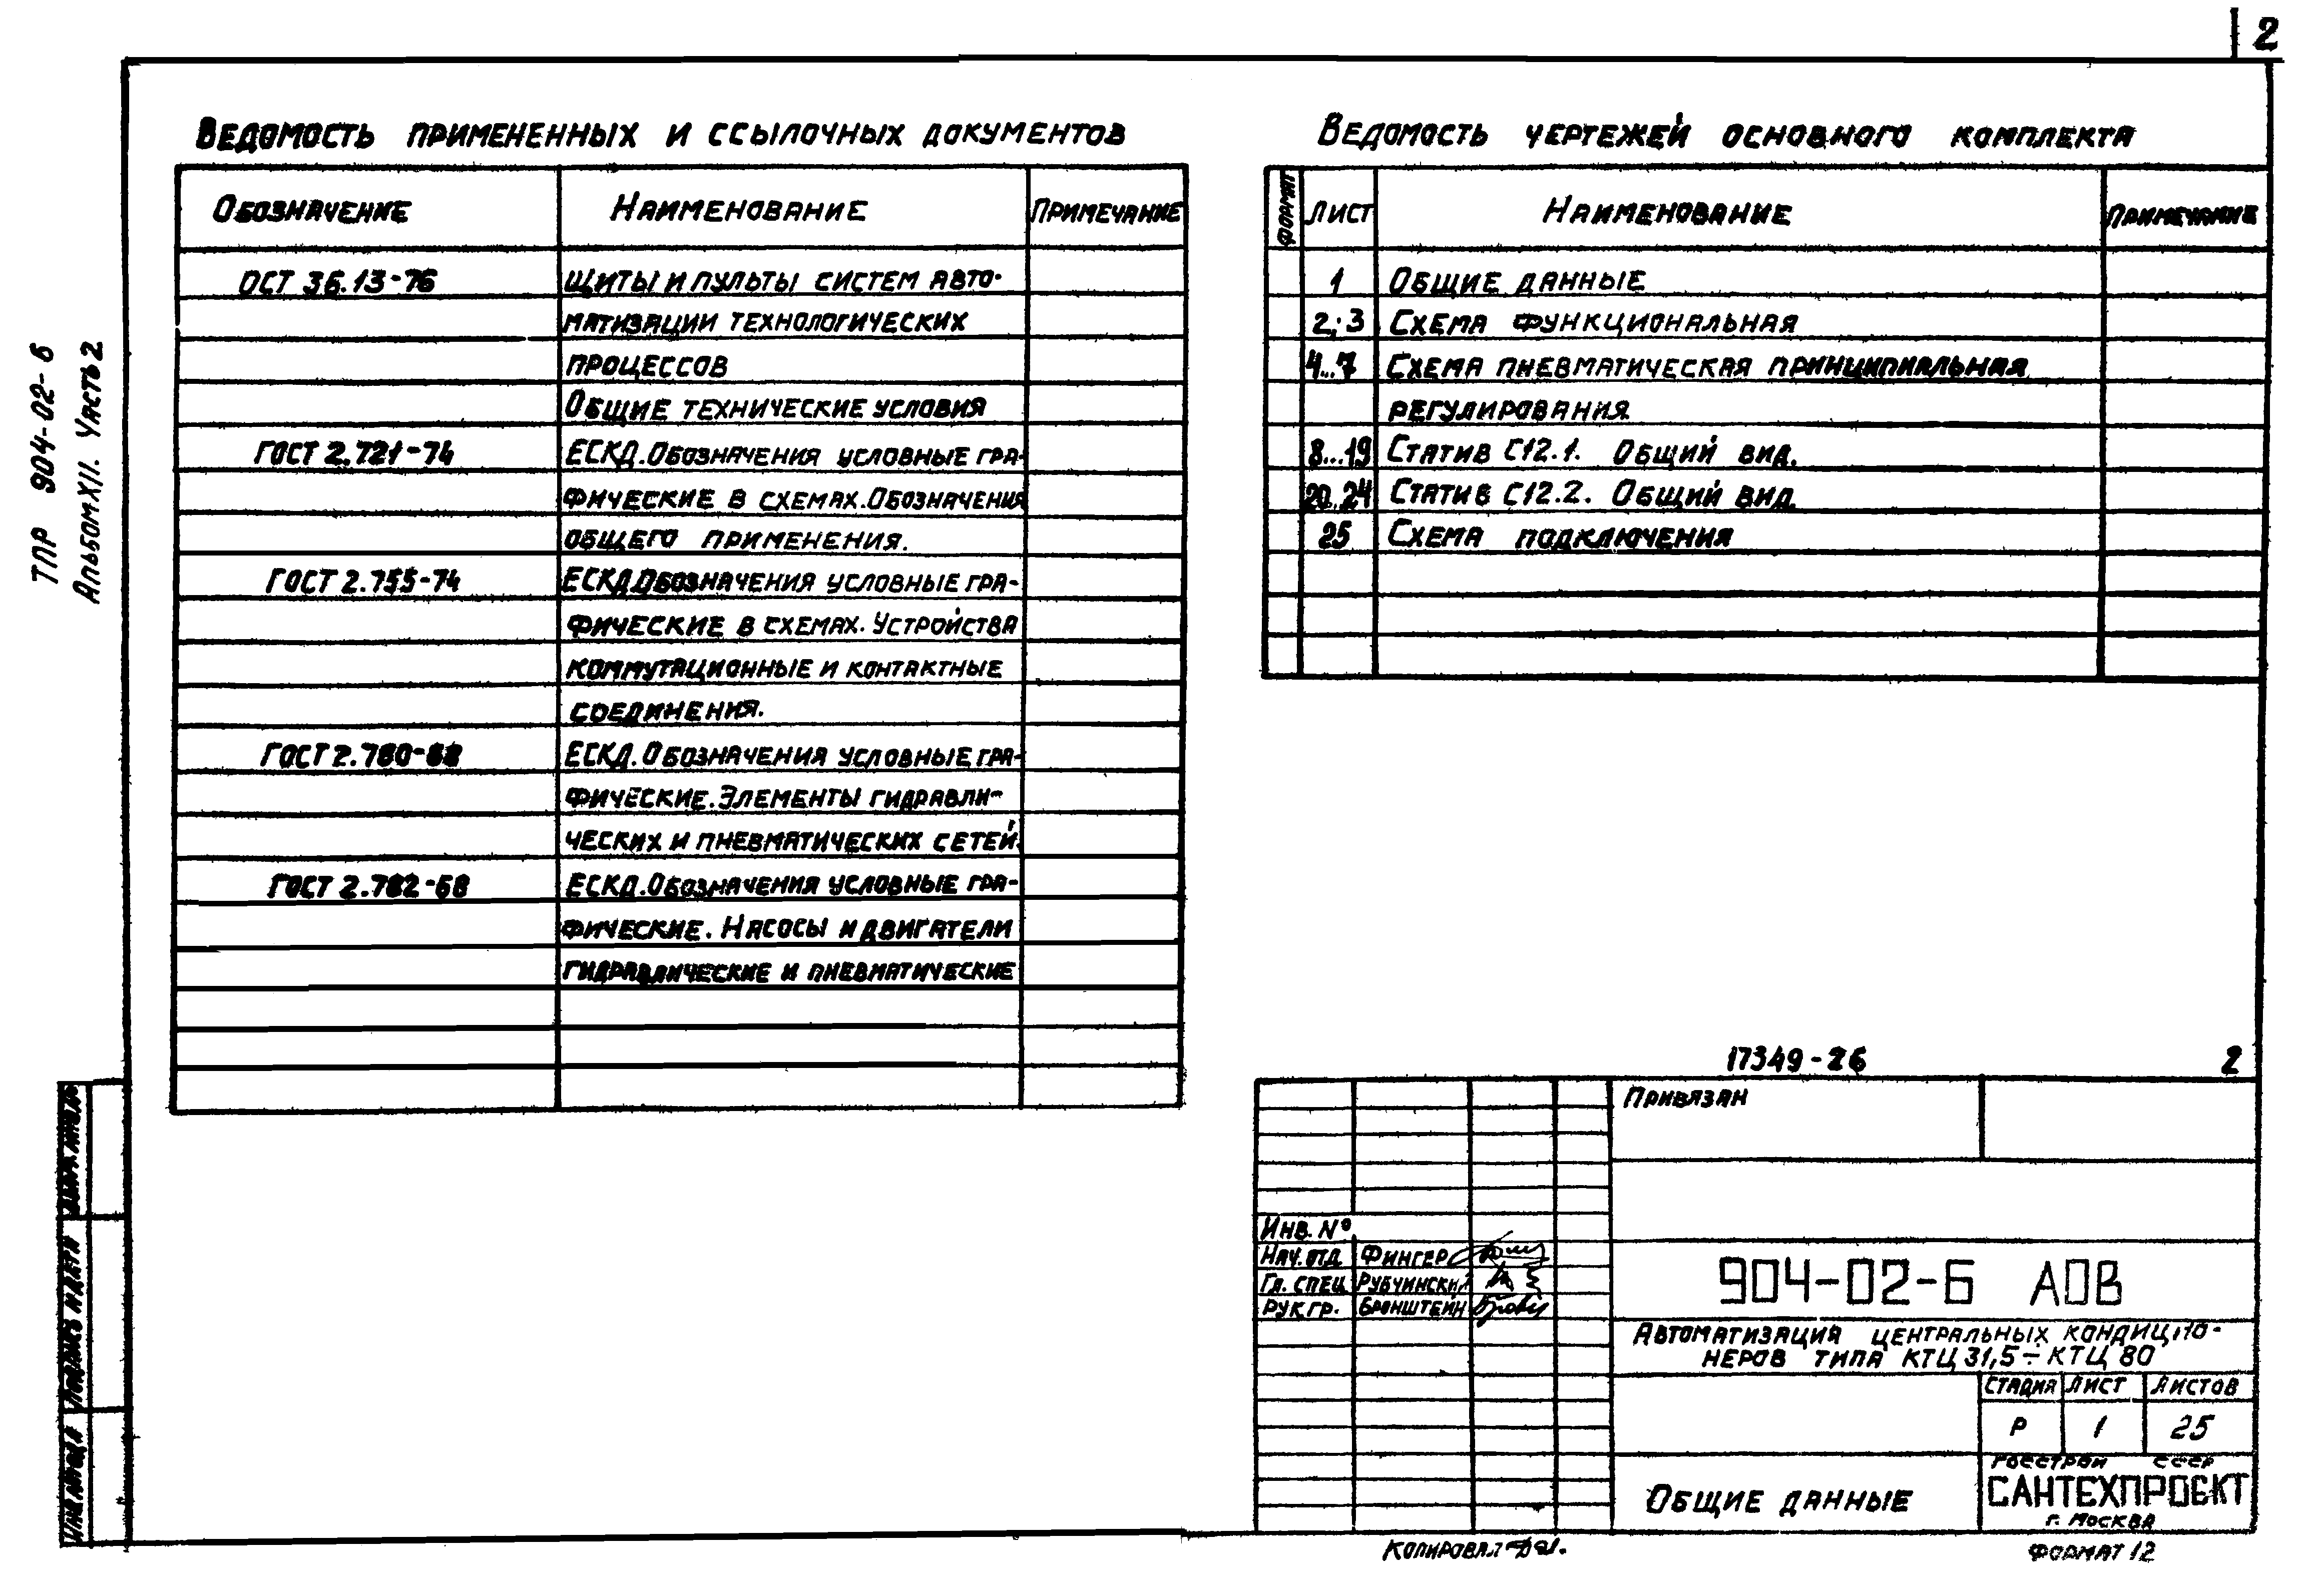 2
ТПР 904-02-6
Альбом XII. Часть 2
Ведомость примененных и ссылочных документов
Обозначение Наименование Примечание
ОСТ 36.13-76 Щиты и пульты систем авто-
матизации технологических
процессов
Общие технические условия
ГОСТ 2.721-74 ЕСКД. Обозначения условные гра-
фические в схемах. Обозначения
общего применения.
ГОСТ 2.755-74 ЕСКД. Обозначения условные гра-
фические в схемах. Устройства
коммутационные и контактные
соединения.
ГОСТ 2.780-68 ЕСКД. Обозначения условные гра-
фические. Элементы гидравли-
ческих и пневматических сетей.
ГОСТ 2.782-68 ЕСКД. Обозначения условные гра-
фические. Насосы и двигатели
гидравлические и пневматические
Ведомость чертежей основного комплекта
Формат Лист Наименование Примечание
1 Общие данные
2; 3 Схема функциональная
4...7 Схема пневматическая принципиальная
регулирования
8...19 Статив С12.1. Общий вид.
20..24 Статив С12.2. Общий вид.
25 Схема подключения
17349-26 2
Привязан
Инв. №
Нач. отд. Фингер
Гл. спец. Рубчинский
Рук. гр. Бронштейн
904-02-6 АОВ
Автоматизация центральных кондицио-
неров типа КТЦ 31,5 ÷ КТЦ 80
Стадия Лист Листов
Р 1 25
Общие данные
Госстрой СССР
САНТЕХПРОЕКТ
г. Москва
Копировал
Формат 12
Подпись и дата